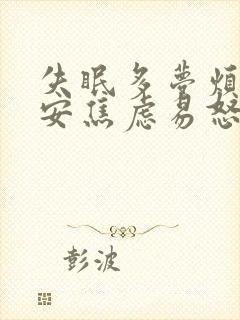 失眠多梦烦
安焦虑易怒
彭波